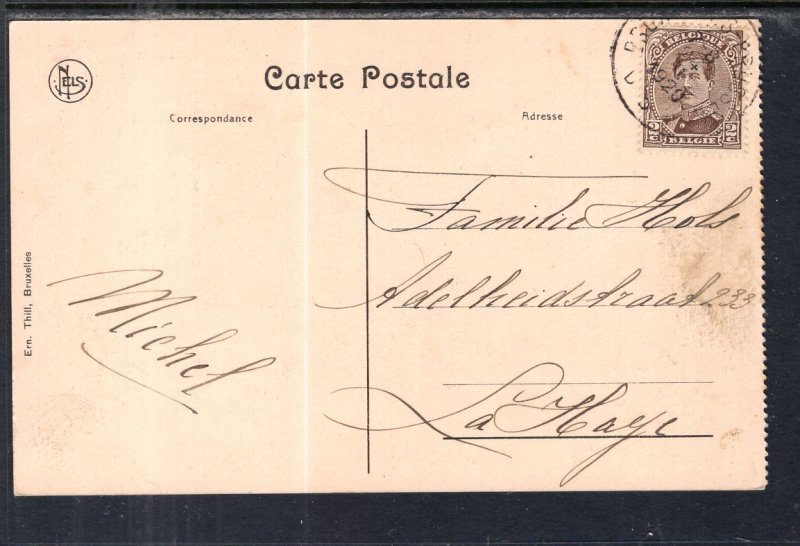 NELS
Carte Postale
Correspondance
Adresse
BELGIQUE
1920
2c 2c
BELGIE
Familie Hols
Adelheidstraat 233
La Haye
Michel
Ern. Thill, Bruxelles